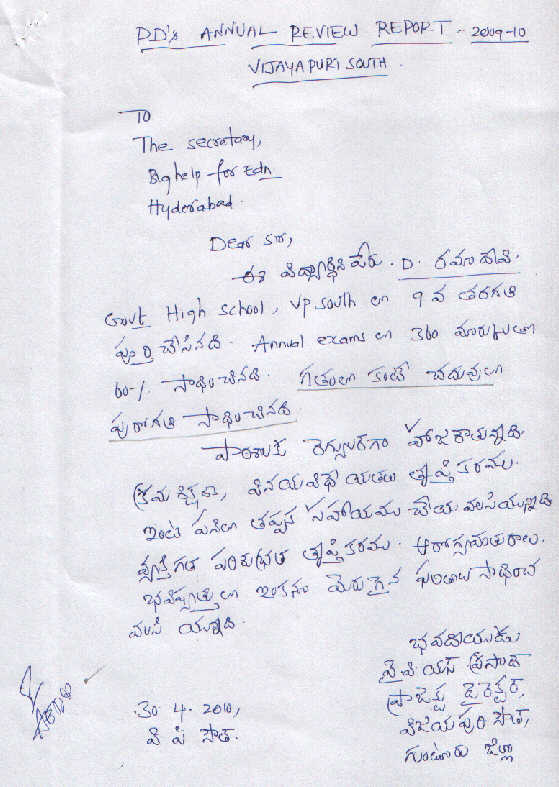 P.D's ANNUAL REVIEW REPORT - 2009-10
VIJAYAPURI SOUTH.
To
The secretary,
Bighelp-for Edn
Hyderabad.
Dear sir,
ఈ విద్యార్థిని పేరు. D. రమాదేవి.
Govt High school, VP south లో 9 వ తరగతి
పూర్తి చేసినది. Annual exams లో 360 మార్కులతో
60-/. సాధించినది. గతంలో కంటే చదువులో
పురోగతి సాధించినది.
పాఠశాలకు రెగ్యులర్‌గా హాజరవుతున్నది.
క్రమశిక్షణ, వినయవిధేయతలు తృప్తికరము.
ఇంటి పనిలో తప్పక సహాయము చేయవలసియున్నది
వ్యక్తిగత పరిశుభ్రత తృప్తికరము. ఆరోగ్యవంతురాలు.
భవిష్యత్తులో ఇంకనూ మెరుగైన ఫలితాలు సాధించ
వలసి యున్నది.
భవదీయుడు
వై పి యస్ ప్రసాద్
ప్రాజెక్టు డైరెక్టర్,
విజయపురి సౌత్,
గుంటూరు జిల్లా
30-4-2010,
వి పి సౌత్.